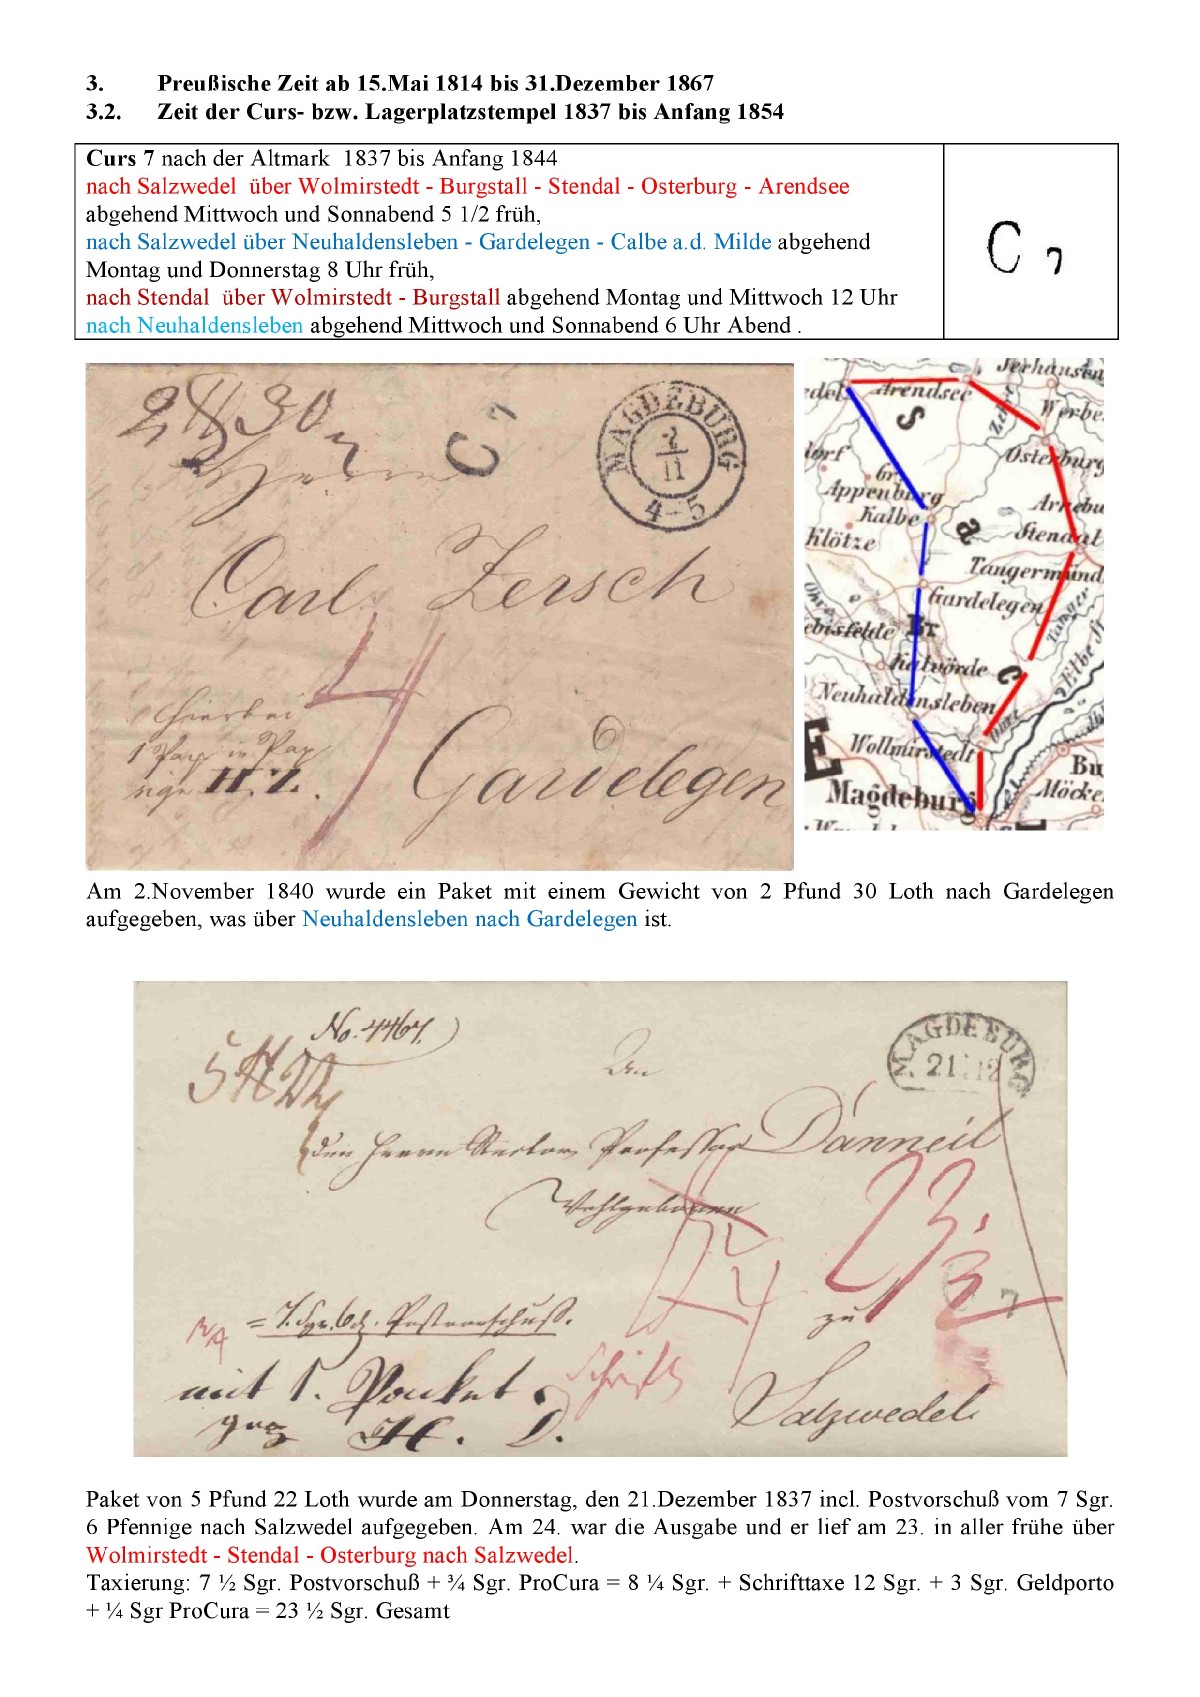 3. Preußische Zeit ab 15.Mai 1814 bis 31.Dezember 1867
3.2. Zeit der Curs- bzw. Lagerplatzstempel 1837 bis Anfang 1854
Curs 7 nach der Altmark 1837 bis Anfang 1844
nach Salzwedel über Wolmirstedt - Burgstall - Stendal - Osterburg - Arendsee
abgehend Mittwoch und Sonnabend 5 1/2 früh,
nach Salzwedel über Neuhaldensleben - Gardelegen - Calbe a.d. Milde abgehend
Montag und Donnerstag 8 Uhr früh,
nach Stendal über Wolmirstedt - Burgstall abgehend Montag und Mittwoch 12 Uhr
nach Neuhaldensleben abgehend Mittwoch und Sonnabend 6 Uhr Abend .
C 7
C 7
MAGDEBURG
2
11
4-5
Herrn
Carl Zersch
4
Hierbei
H. Z.
Gardelegen
Arendsee
Osterburg
Appenburg
Kalbe
Klötze
Stendal
Tangermünd
Gardelegen
Neuhaldensleben
Wollmirstedt
Magdeburg
Bu
Möcke
Am 2.November 1840 wurde ein Paket mit einem Gewicht von 2 Pfund 30 Loth nach Gardelegen
aufgegeben, was über Neuhaldensleben nach Gardelegen ist.
No. 4467.
MAGDEBURG
21 12
An
den Herrn Rector Professor Danneil
Wohlgeboren
23
zu
7
= 7. Sgr. 6 d. Postvorschuß.
mit 1. Packet
Schrift
gez H. D.
Salzwedel
Paket von 5 Pfund 22 Loth wurde am Donnerstag, den 21.Dezember 1837 incl. Postvorschuß vom 7 Sgr.
6 Pfennige nach Salzwedel aufgegeben. Am 24. war die Ausgabe und er lief am 23. in aller frühe über
Wolmirstedt - Stendal - Osterburg nach Salzwedel.
Taxierung: 7 ½ Sgr. Postvorschuß + ¾ Sgr. ProCura = 8 ¼ Sgr. + Schrifttaxe 12 Sgr. + 3 Sgr. Geldporto
+ ¼ Sgr ProCura = 23 ½ Sgr. Gesamt